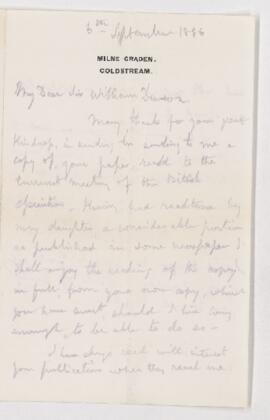 6th September 1886
MILNE GRADEN,
COLDSTREAM.
My Dear Sir William Dawson
Many thanks for your great
kindness, in sending to me a
copy of your paper, read to the
current meeting of the British
Association. Having had read to me by
my daughter a considerable portion
as published in some newspaper I
shall enjoy the reading of the
in full, from your own copy, which
you have sent, should I live long
enough, to be able to do so -
I have always read with interest
your publications when they reach me